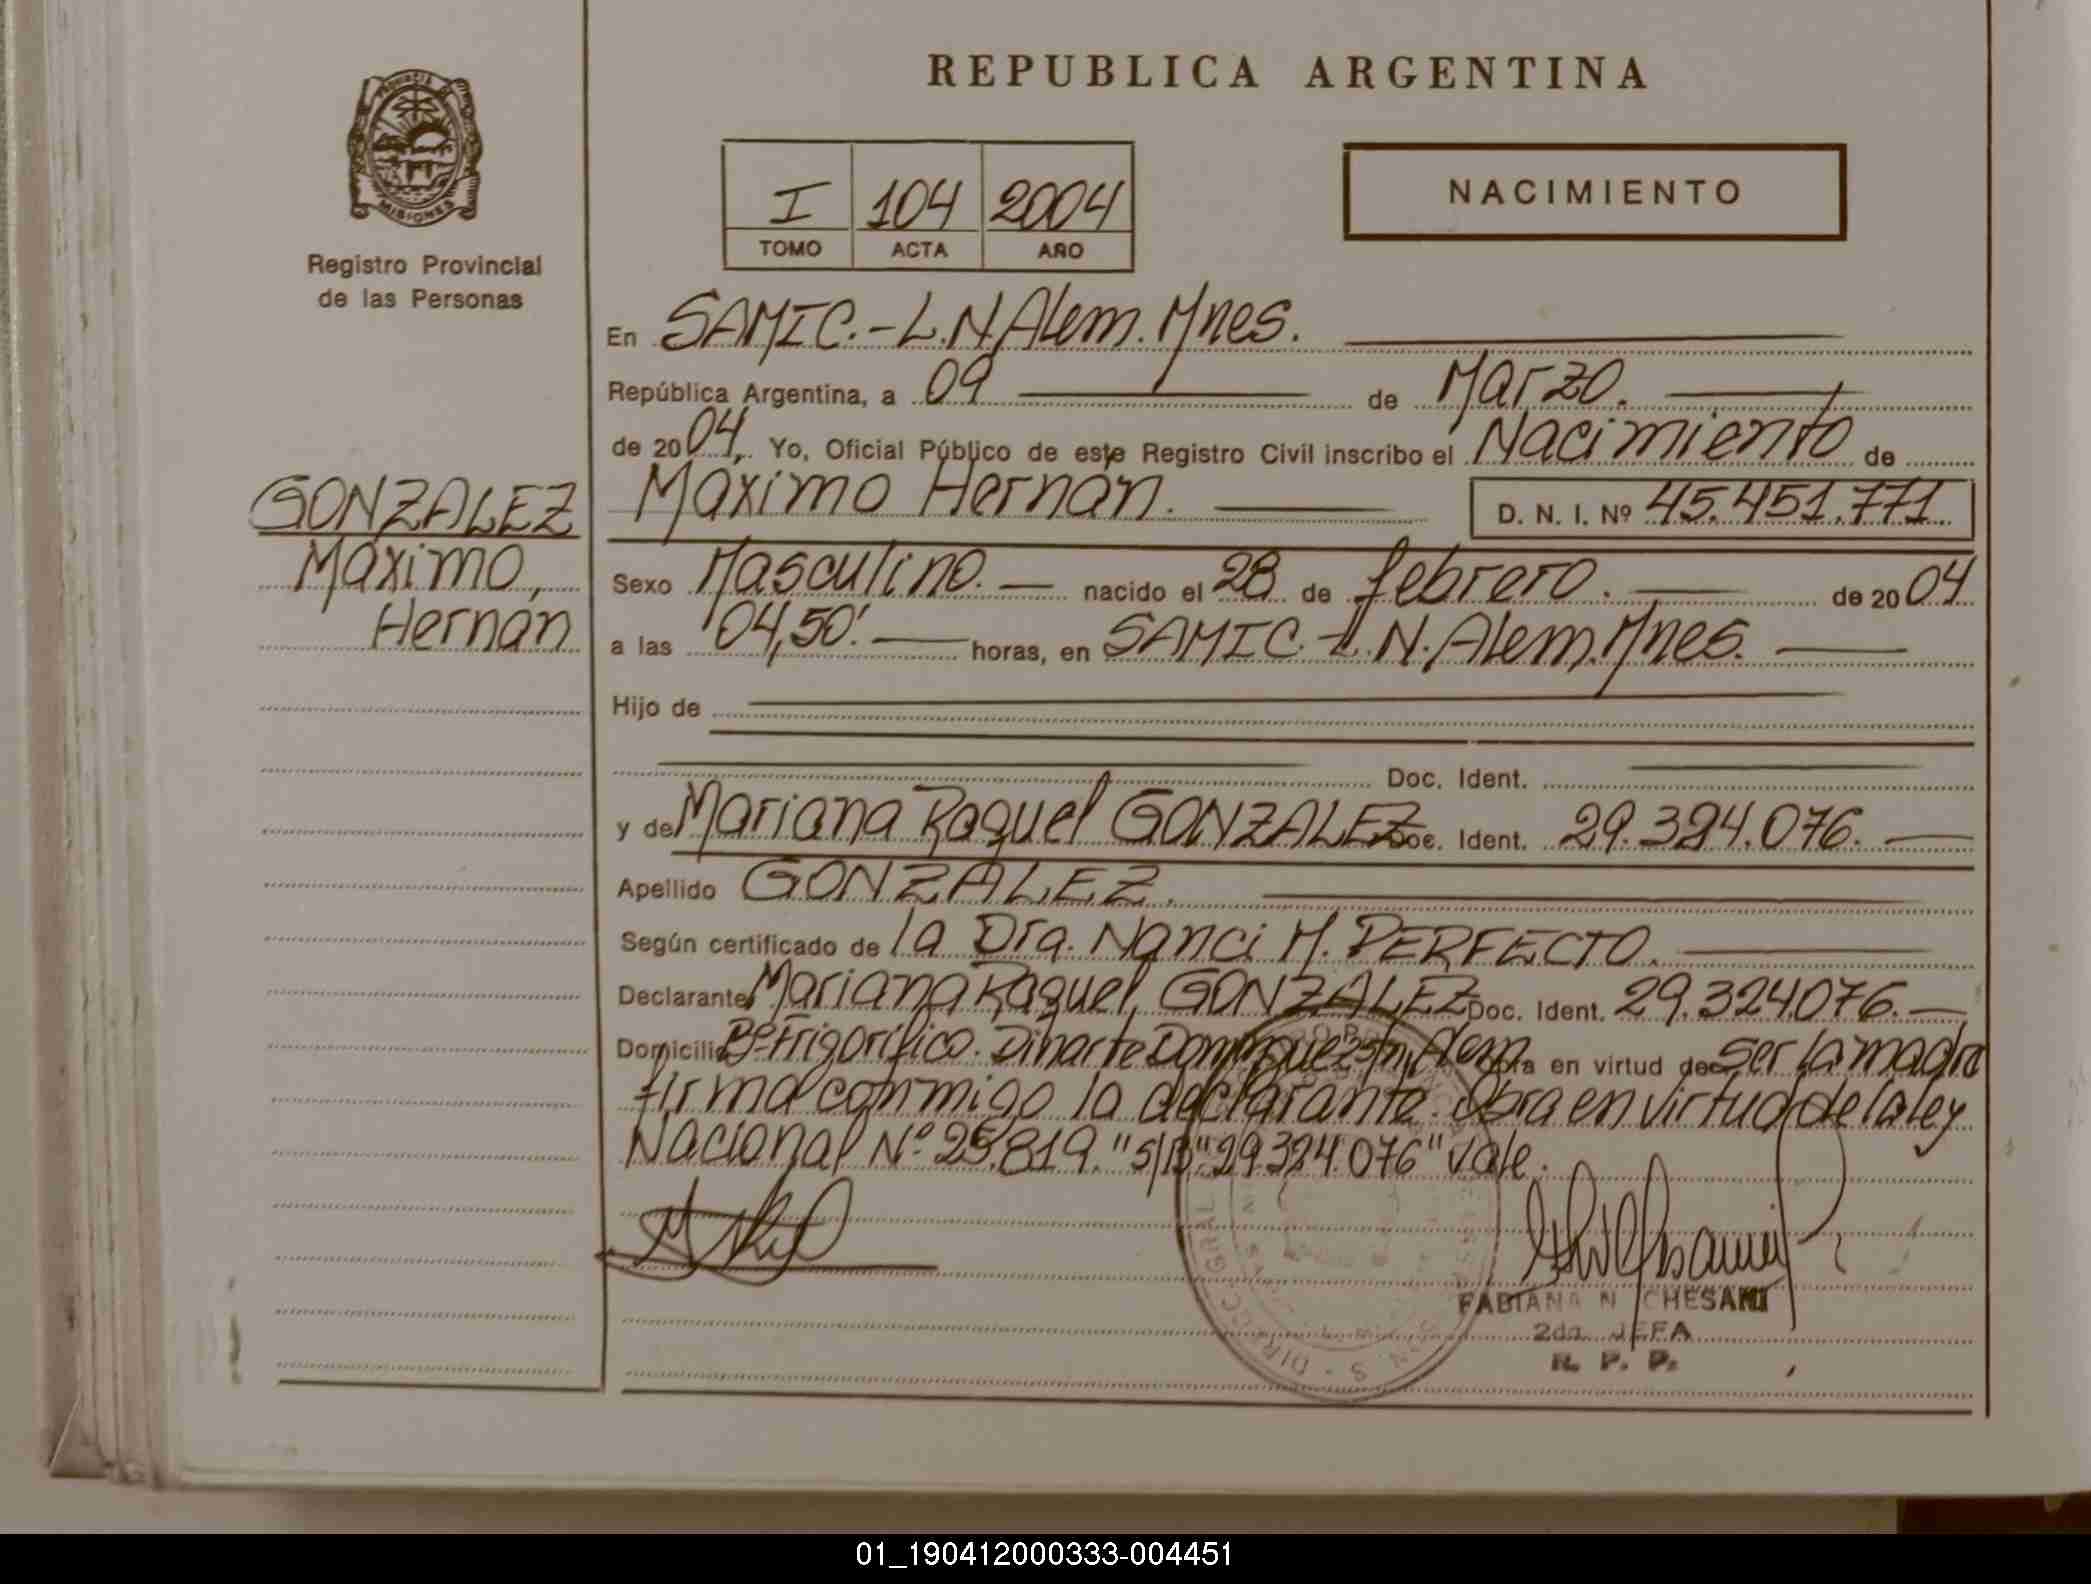 REPUBLICA ARGENTINA
PROVINCIA DE
MISIONES
Registro Provincial
de las Personas
I 104 2004
TOMO ACTA AÑO
NACIMIENTO
En SAMIC.-L.N.Alem.Mnes.
República Argentina, a 09 de Marzo.
de 2004, Yo, Oficial Público de este Registro Civil inscribo el Nacimiento de
GONZALEZ
Máximo,
Hernán
Máximo Hernán.
D. N. I. Nº 45.451.771.
Sexo Masculino. nacido el 28 de febrero. de 2004
a las 04,50'. horas, en SAMIC.-L.N.Alem.Mnes.
Hijo de
Doc. Ident.
y de Mariana Raquel GONZALEZ Doc. Ident. 29.324.076.
Apellido GONZALEZ.
Según certificado de la Dra. Nanci M. PERFECTO.
Declarante Mariana Raquel GONZALEZ Doc. Ident. 29.324.076.
Domicilio Bº Frigorífico. Dinarte Dominguez s/n, Alem Obra en virtud de ser la madre
firma conmigo la declarante. Obra en virtud de la ley
Nacional Nº 25.819. "s/B" "29.324.076" vale.
FABIANA N CHESANI
2da. JEFA
R. P. P.
01_190412000333-004451